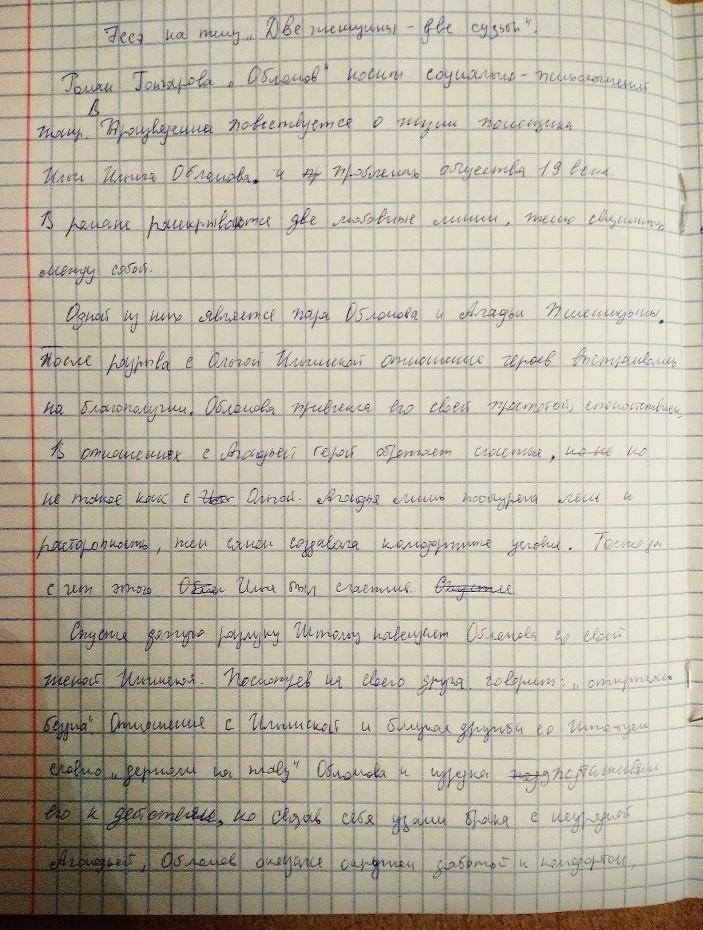 Эссэ на тему „Две женщины - две судьбы".
Роман Гончарова „Обломов" носит социально-психологический
В
жанр. Произведении повествуется о жизни помещика
Ильи Ильича Обломова. и проблемах общества 19 века.
В романе раскрываются две любовные линии, тесно связанные
между собой.
Одной из них является пара Обломова и Агафьи Пшеницыны.
После разрыва с Ольгой Ильинской отношение героев выстраивались
на благополучии. Обломова привлекла его своей простотой, спокойствием.
В отношениях с Агафьей герой обретает счастье, но не но
не такое как с Ольгой. Агафья лишь поощряла лень и
расторопность, тем самым создавала комфортные условия. Только за
с чет этого Илья был счастлив. Спустя
Спустя долгую разлуку Штольц навещает Обломова со своей
женой Ильинской. Посмотрев на своего друга, говорит: „открылась
бездна" Отношение с Ильинской и близкая дружба со Штольцем
словно „держали на плаву" Обломова и изредка подталкивали
его к действиям, но связав себя узами брака с
Агафьей, Обломов окружен заботой и комфортом,